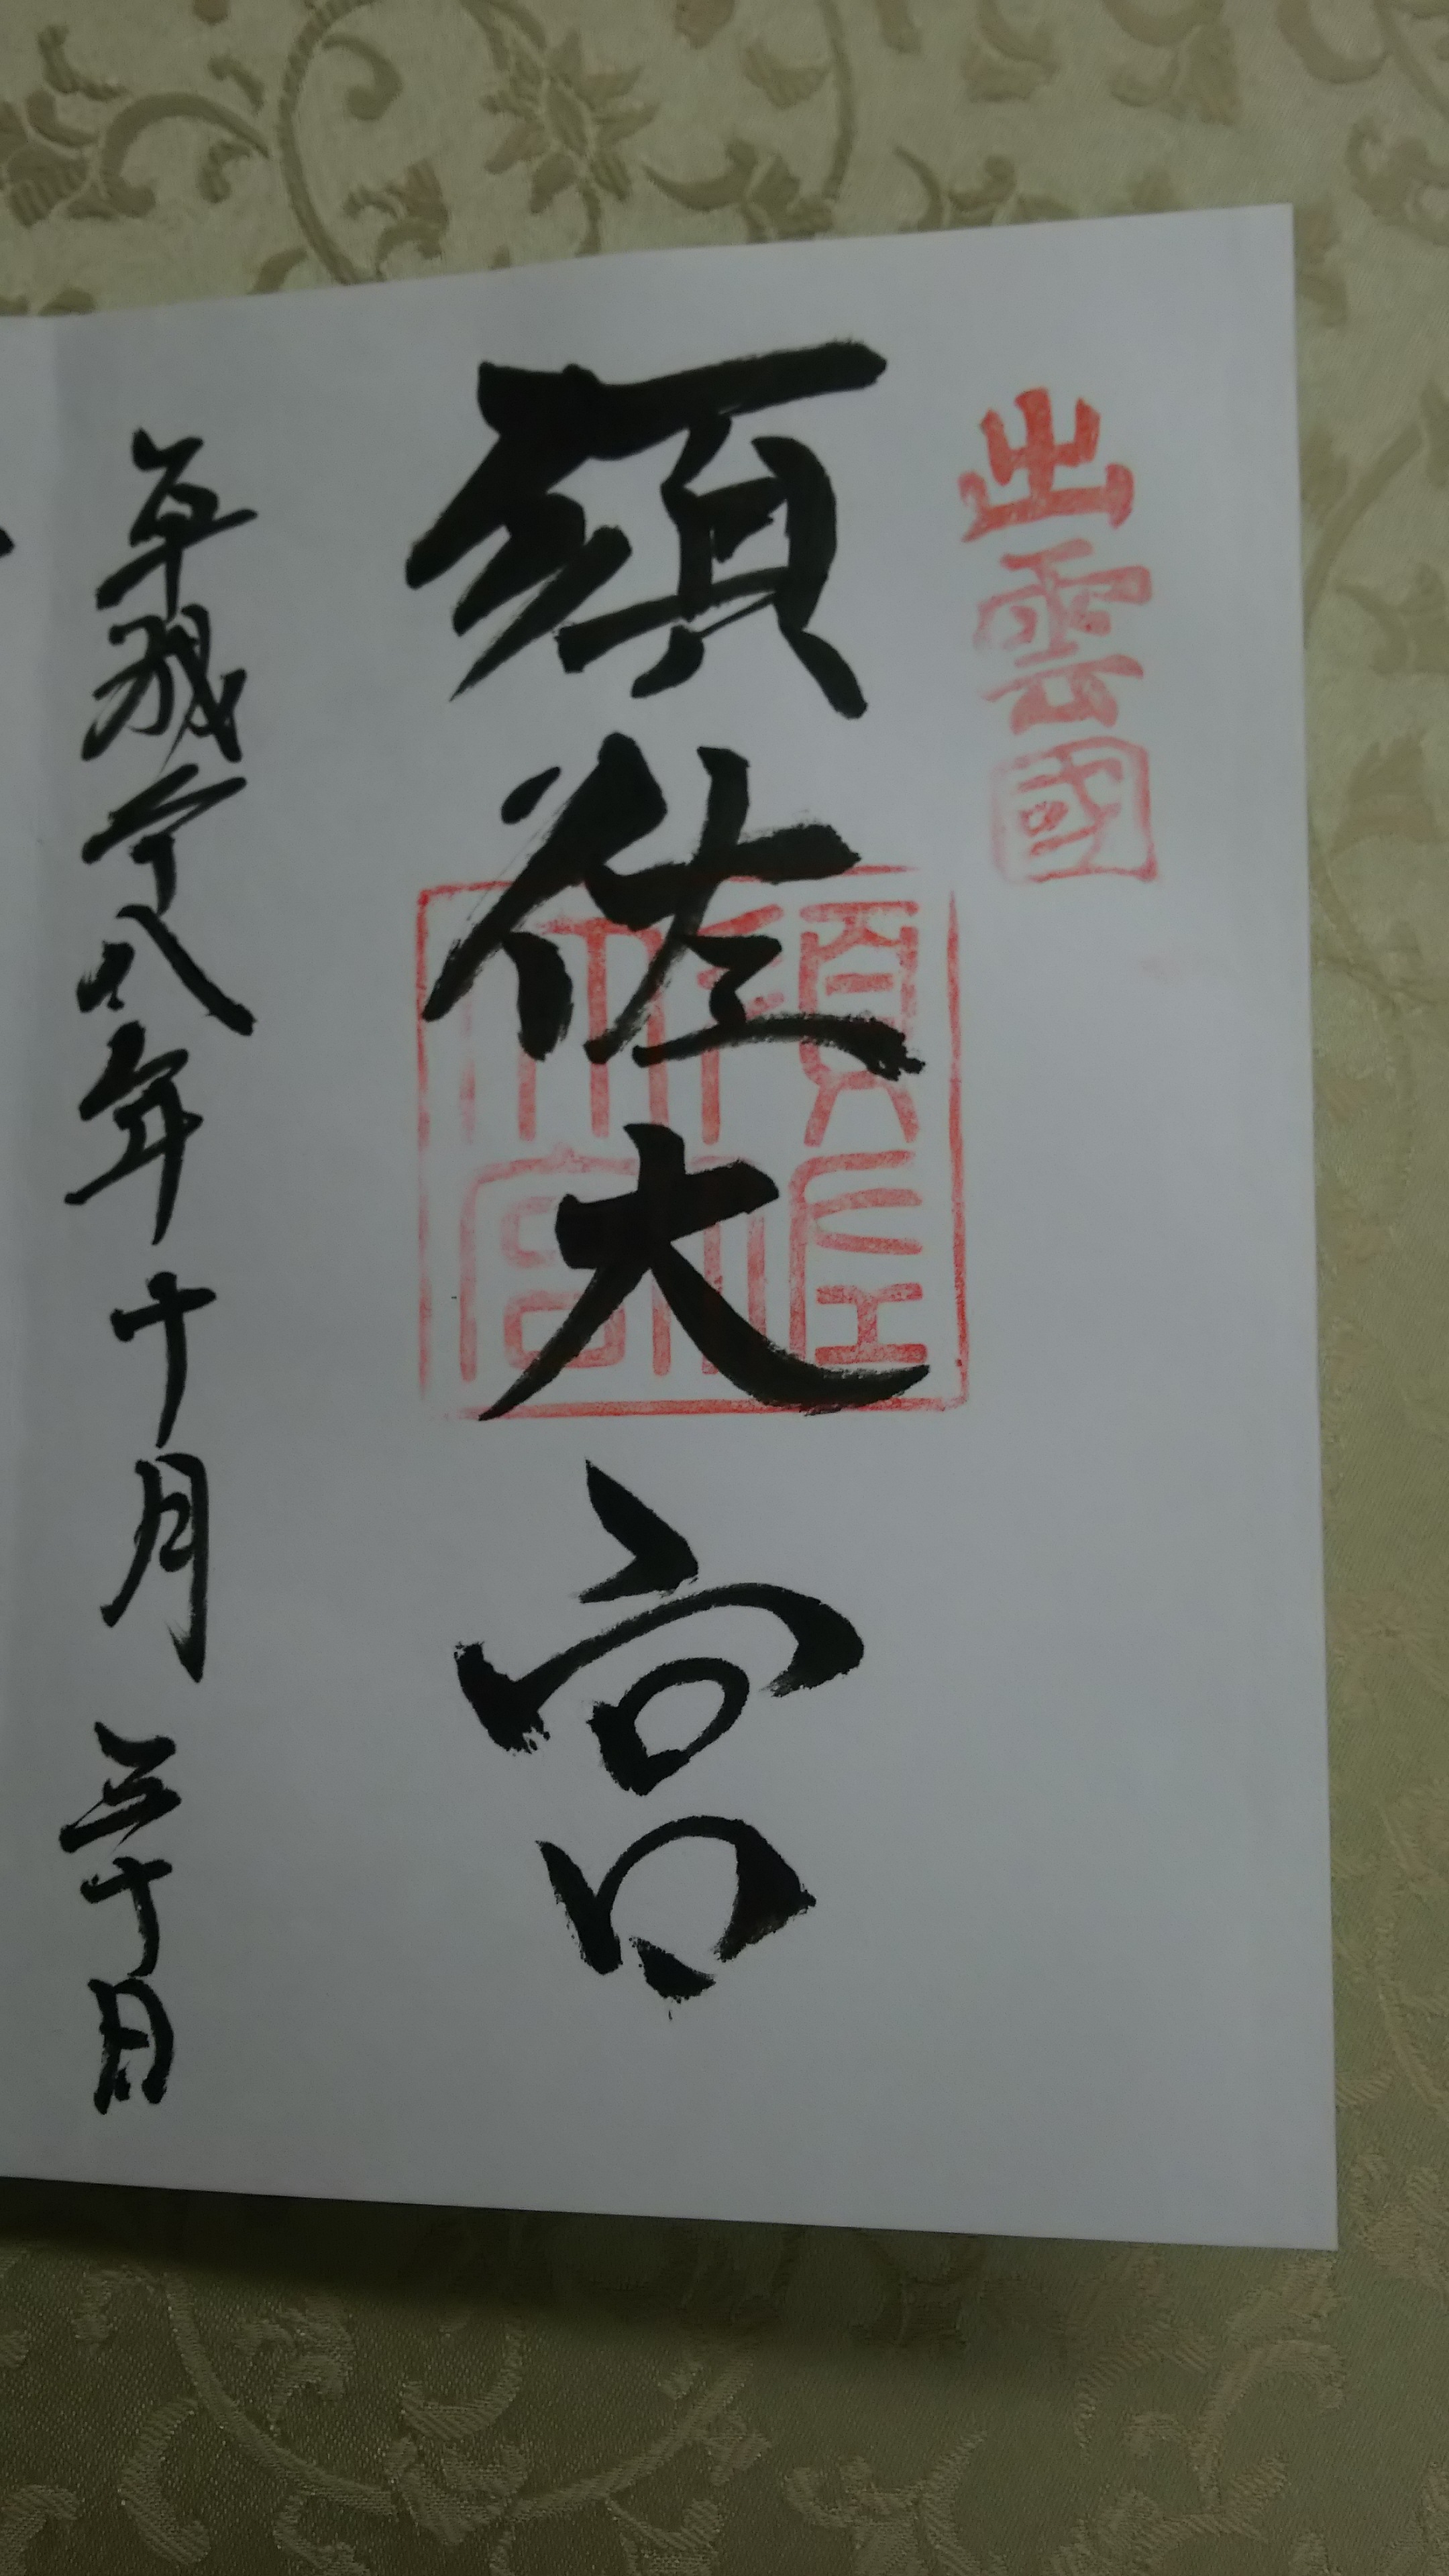 出雲國
須佐大宮
須佐大宮
平成廿八年十月三十日